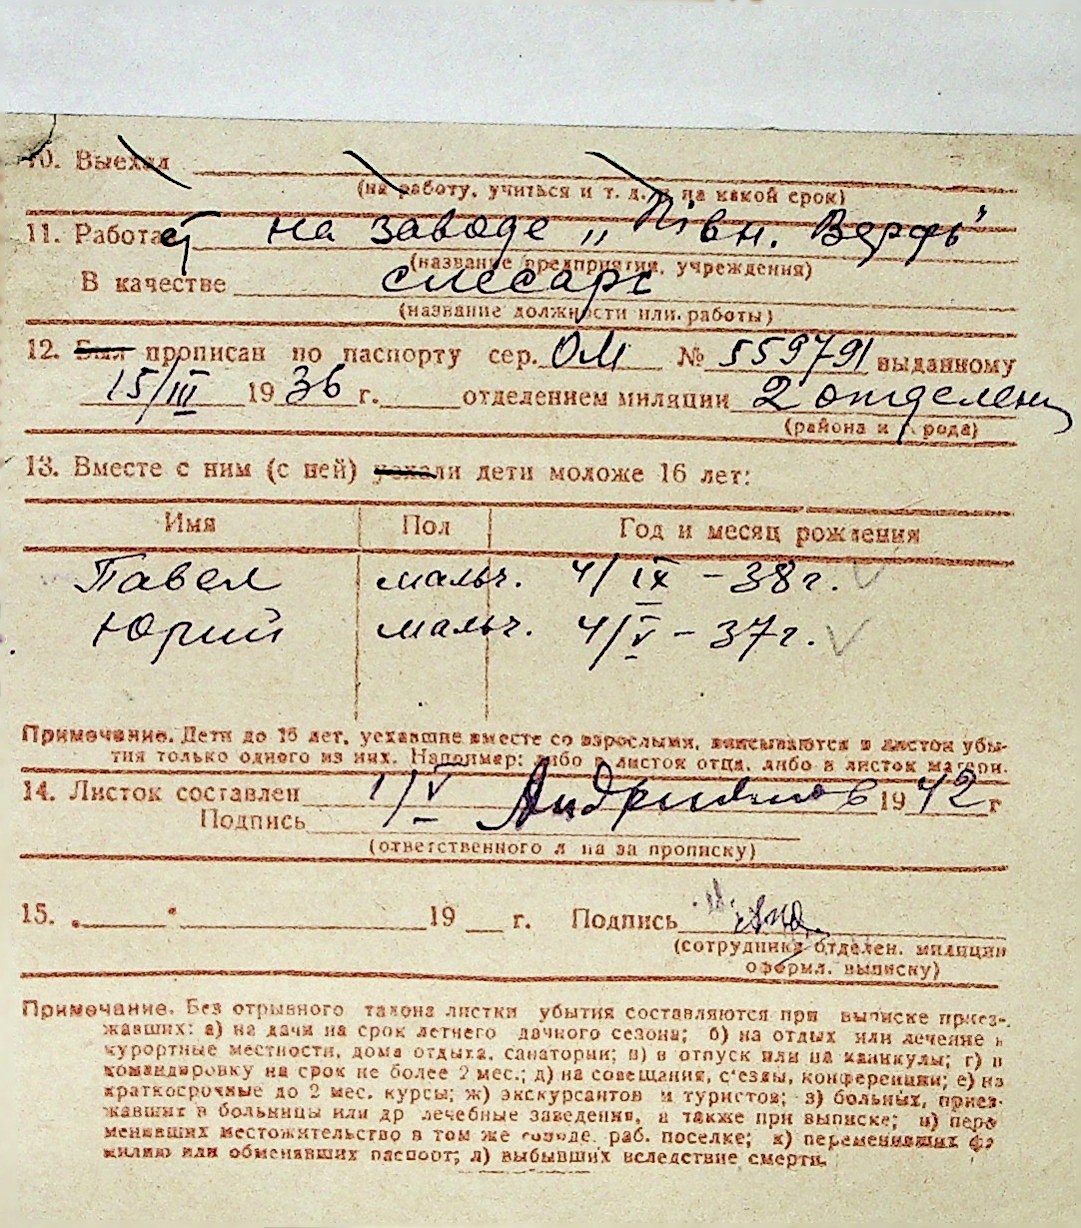 10. Выехал
(на работу, учиться и т. д. и на какой срок)
11. Работает на заводе „Півн. Верфь"
(название предприятия, учреждения)
В качестве слесарь
(название должности или работы)
12. Был прописан по паспорту сер. ОМ № 559791 выданному
15/III 1936 г. отделением милиции 2 отделен
(района и города)
13. Вместе с ним (с ней) уехали дети моложе 16 лет:
Имя Пол Год и месяц рождения
Павел мальч. 4/IX – 38 г.
Юрий мальч. 4/V – 37 г.
Примечание. Дети до 16 лет, уехавшие вместе со взрослыми, вписываются в листок убы-
тия только одного из них. Например: либо в листок отца, либо в листок матери.
14. Листок составлен 1/V 1942 г
Подпись Андриянов
(ответственного лица за прописку)
15. 19 г. Подпись
(сотрудника отделен. милиции
оформл. выписку)
Примечание. Без отрывного талона листки убытия составляются при выписке приез-
жавших: а) на дачи на срок летнего дачного сезона; б) на отдых или лечение в
курортные местности, дома отдыха, санатории; в) в отпуск или на каникулы; г) в
командировку на срок не более 2 мес.; д) на совещания, с'езды, конференции; е) на
краткосрочные до 2 мес. курсы; ж) экскурсантов и туристов; з) больных, приез-
жавших в больницы или др лечебные заведения, а также при выписке; и) пере
менивших местожительство в том же городе, раб. поселке; к) переменивших фа
милию или обменявших паспорт; л) выбывших вследствие смерти.